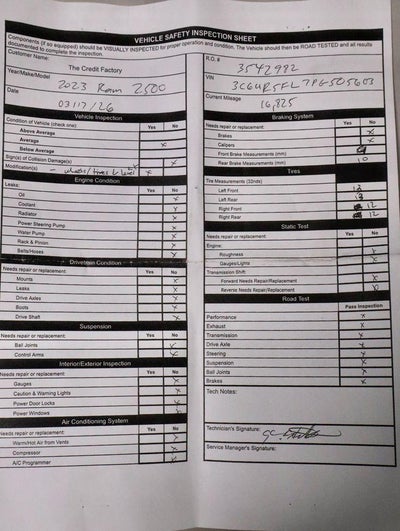 VEHICLE SAFETY INSPECTION SHEET
Components (if so equipped) should be VISUALLY INSPECTED for proper operation and condition. The Vehicle should then be ROAD TESTED and all results
documented to complete the inspection.
Customer Name:
The Credit Factory
Year/Make/Model
2023 Ram 2500
Date
03/17/26
Vehicle Inspection
Condition of Vehicle (check one) Yes No
Above Average
Average x
Below Average
Sign(s) of Collision Damage(s) x
Modification(s) - wheels/tires & level x
Engine Condition
Leaks: Yes No
Oil x
Coolant x
Radiator x
Power Steering Pump x
Water Pump x
Rack & Pinion x
Belts/Hoses x
Drivetrain Condition
Needs repair or replacement: Yes No
Mounts x
Leaks x
Drive Axles x
Boots x
Drive Shaft x
Suspension
Needs repair or replacement: Yes No
Ball Joints x
Control Arms x
Interior/Exterior Inspection
Needs repair or replacement: Yes No
Gauges x
Caution & Warning Lights x
Power Door Locks x
Power Windows x
Air Conditioning System
Needs repair or replacement: Yes No
Warm/Hot Air from Vents x
Compressor x
A/C Programmer x
R.O. #
3542982
VIN
Current Mileage
16,825
Braking System
Needs repair or replacement: Yes No
Brakes x
Calipers x
Front Brake Measurements (mm)
Rear Brake Measurements (mm) 10
Tires
Tire Measurements (32nds)
Left Front
Left Rear
Right Front 12
Right Rear 12
Static Test
Needs repair or replacement: Yes No
Engine:
Roughness x
Gauges/Lights x
Transmission Shift:
Forward Needs Repair/Replacement x
Reverse Needs Repair/Replacement x
Road Test
Pass Inspection
Performance x
Exhaust x
Transmission x
Drive Axle x
Steering x
Suspension x
Ball Joints x
Brakes x
Tech Notes:
Technician's Signature:
Service Manager's Signature: